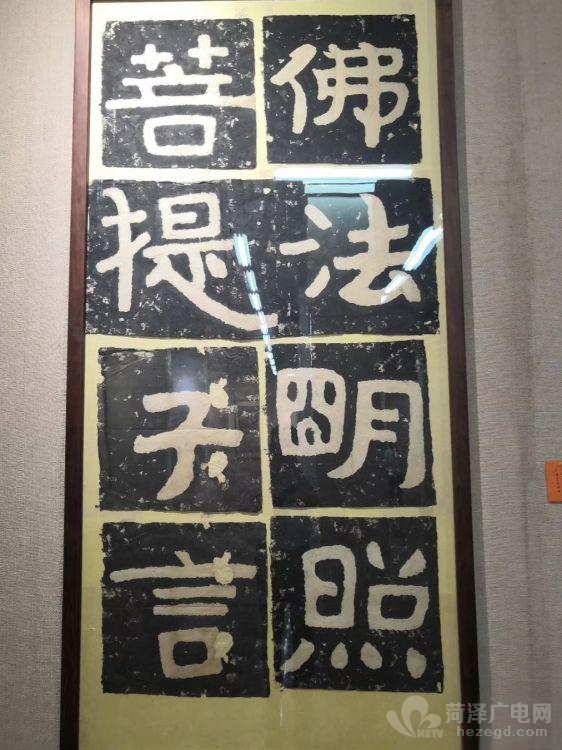 佛法明照
菩提言
菏泽广电网
HZTV
hezegd.com